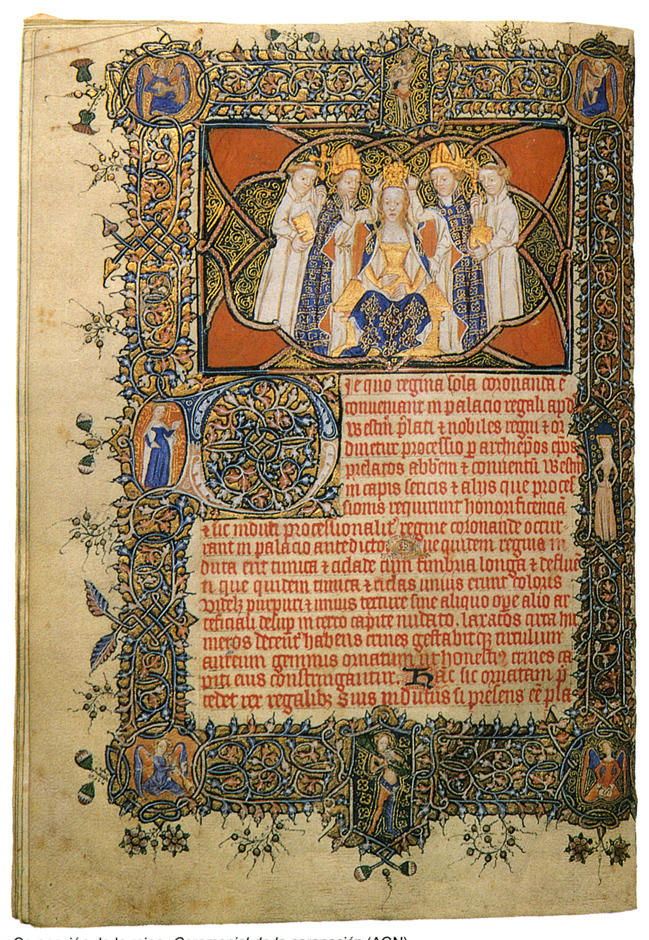 Die quo regina sola coronanda ē
conueniant in palacio regali apd
westm̄ p̄lati & nobiles regni & or
dinetur processio p archiep̄os ep̄os
prelatos abbem & conuentū westm̄
in capis sericis & alijs que proces
sionis requirunt honorificencia
& sic induti processionalit̄ regine coronande occur
rant in palacio antedicto que quidem regina in
duta erit tunica & ciclade cum fimbria longa & deflue
ti que quidem tunica & ciclas unius erunt coloris
videlz purpur & unius texture sine aliquo ope alio ar
teficiali desup in texto capite nudato. laxatos circa hu
meros decent̄ habens crines gestabit qz circulum
aureum gemmis ornatum honestiꝰ crines ca
piti eius constringantur. Hac sic ornatam p̄
cedet rex regalibz suis indutus si presens eē
Ceremonial de la coronación (AGN)